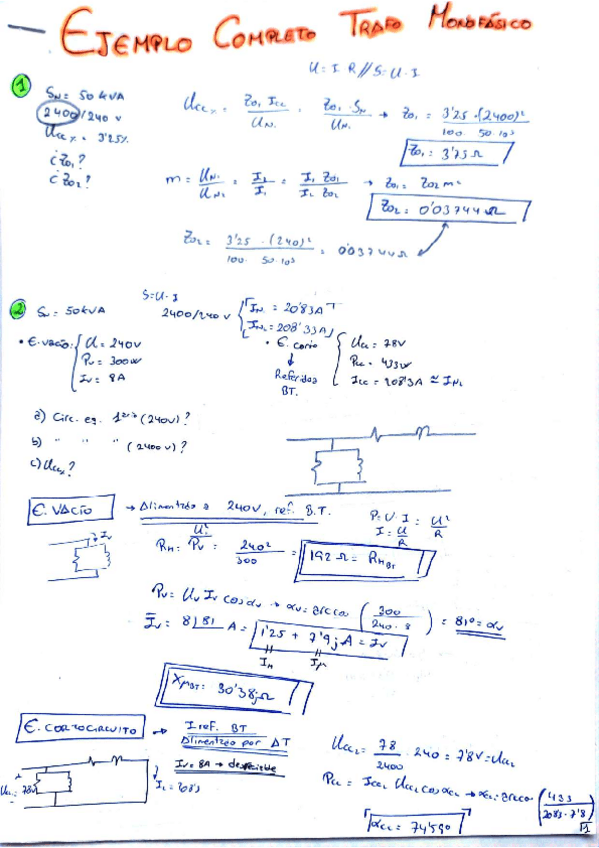 — EJEMPLO COMPLETO TRAFO MONOFÁSICO
U = I R // S = U · I
1
SN = 50 kVA
2400/240 V
Uccx = 3'25%
¿Z01?
¿Z02?
Uccx = Z01 Icc / UN1 = Z01 · SN / UN1² → Z01 = 3'25 · (2400)² / 100 · 50·10³
Z01 = 3'75 Ω
m = UN1 / UN2 = I2 / I1 = I1 Z01 / I2 Z02 → Z01 = Z02 m²
Z02 = 0'03744 Ω
Z02 = 3'25 · (240)² / 100 · 50·10³ = 0'03744 Ω
2
SN = 50 kVA
S = U · I
2400/240 V
IN1 = 20'83 A
IN2 = 208'33 A
• E. vacío:
U = 240 V
Pv = 300 W
Iv = 8 A
• E. corto
Referidos
BT.
Ucc = 78 V
Pcc = 433 W
Icc = 208'3 A ≃ IN2
a) Circ. eq. (240 V)?
b) " " " (2400 V)?
c) Uccx?
E. VACÍO → Alimentado a 240 V, ref. B.T.
P = U · I = U² / R
I = U / R
Iv
RH = U² / Pv = 240² / 300 = 192 Ω = RH BT
Pv = Uv Iv cos αv → αv = arccos (300 / 240 · 8) = 81º = αv
Iv = 8|81 A = 1'25 + 7'9j A = Iv
IH Iμ
Xμ BT = 30'38j Ω
E. CORTOCIRCUITO → I ref. BT
Alimentado por AT
Iv = 8 A → despreciable
Ucc = 78 V
I2 = 208'3
Ucc2 = 78 / 2400 · 240 = 7'8 V = Ucc2
Pcc = Icc2 Ucc2 cos αcc → αcc = arccos (433 / 208'3 · 7'8)
αcc = 74'54º